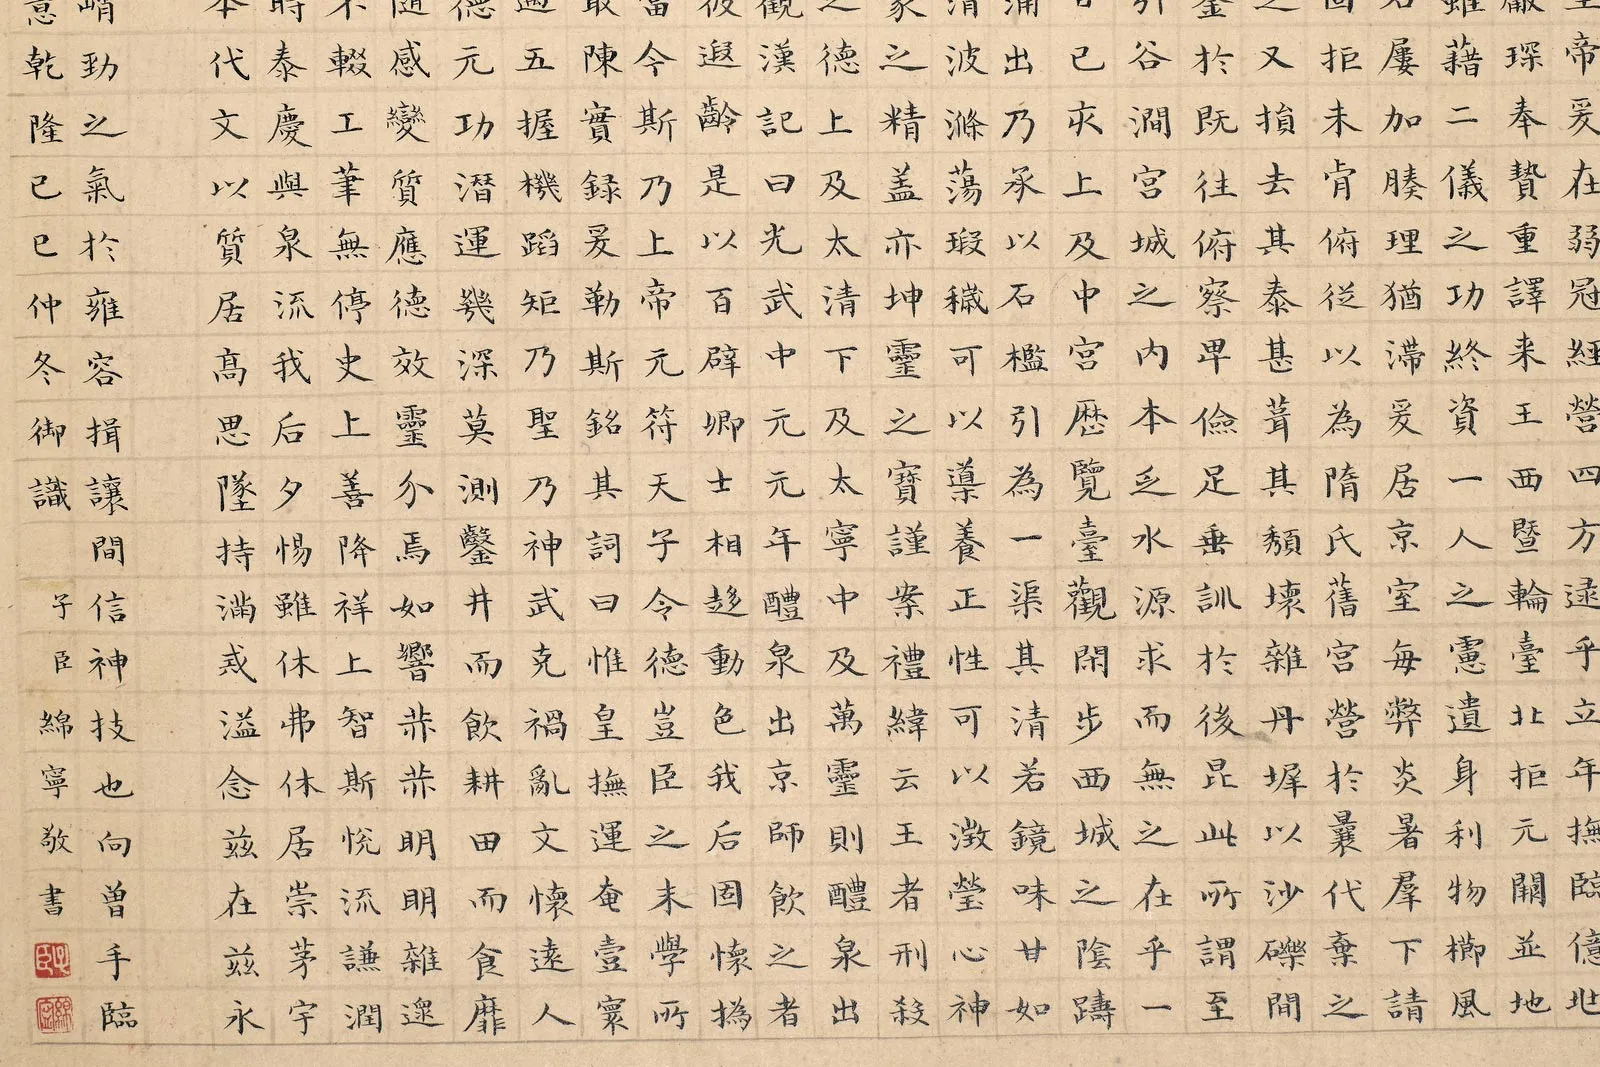 帝爰在弱冠經營四方逮乎立年撫臨億兆
嚴琛奉贄重譯来王西暨輪臺北拒元闕並地
雖藉二儀之功終資一人之慮遺身利物櫛風
若屢加腠理猶滯爰居京室每弊炎暑羣下請
固拒未肯俯從以為隋氏舊宮營於曩代棄之
之又損去其泰甚葺其頹壞雜丹墀以沙礫間
於既往俯察卑儉足垂訓於後昆此所謂至
引谷澗宮城之内本乏水源求而無之在乎一
已夾上及中宮歷覽臺觀閑步西城之陰躊
涌出乃承以石檻引為一渠其清若鏡味甘如
清波滌蕩瑕穢可以導養正性可以澂瑩心神
象之精盖亦坤靈之寶謹案禮緯云王者刑殺
之德上及太清下及太寧中及萬靈則醴泉出
觀漢記曰光武中元元年醴泉出京師飲之者
彼遐齡是以百辟卿士相趍動色我后固懷撝
當今斯乃上帝元符天子令德豈臣之末學所
敢陳實録爰勒斯銘其詞曰惟皇撫運奄壹寰
過五握機蹈矩乃聖乃神武克禍亂文懷遠人
德元功潛運幾深莫測鑿井而飲耕田而食靡
隨感變質應德效靈介焉如響赫赫明明雜遝
不輟工筆無停史上善降祥上智斯悅流謙潤
時泰慶與泉流我后夕惕雖休弗休居崇茅宇
本代文以質居髙思墜持滿戒溢念茲在茲永
峭勁之氣於雍容揖讓間信神技也向曾手臨
意乾隆己巳仲冬御識
子臣綿寧敬書
子臣
綿寧